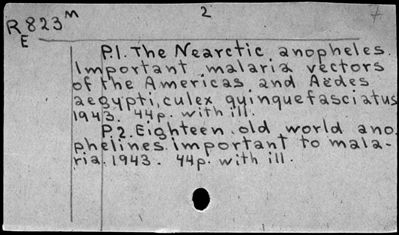 R823M
2
7
E
P.1. The Nearctic anopheles.
Important malaria vectors
of the Americas and Aëdes
aegypti, culex quinquefasciatus
1943. 44p. with ill.
P.2. Eighteen old world ano-
phelines important to mala-
ria. 1943. 44p. with ill.